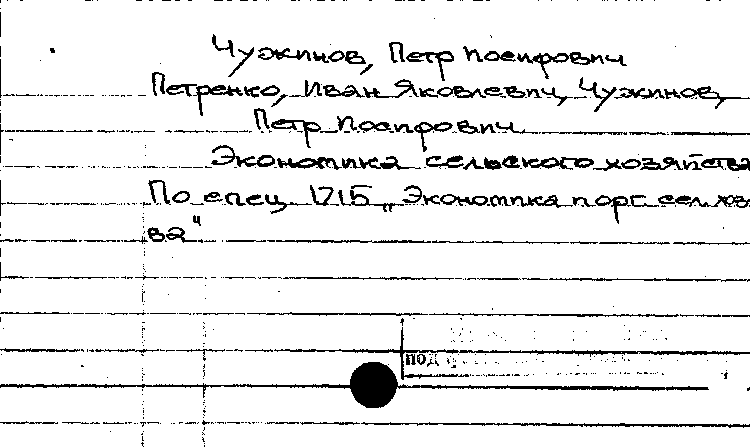 Чужинов, Петр Иосифович
Петренко, Иван Яковлевич, Чужинов,
Петр Иосифович.
Экономика сельского хозяйства
По спец. 1715 „Экономика и орг. сел. хоз
ва"
под